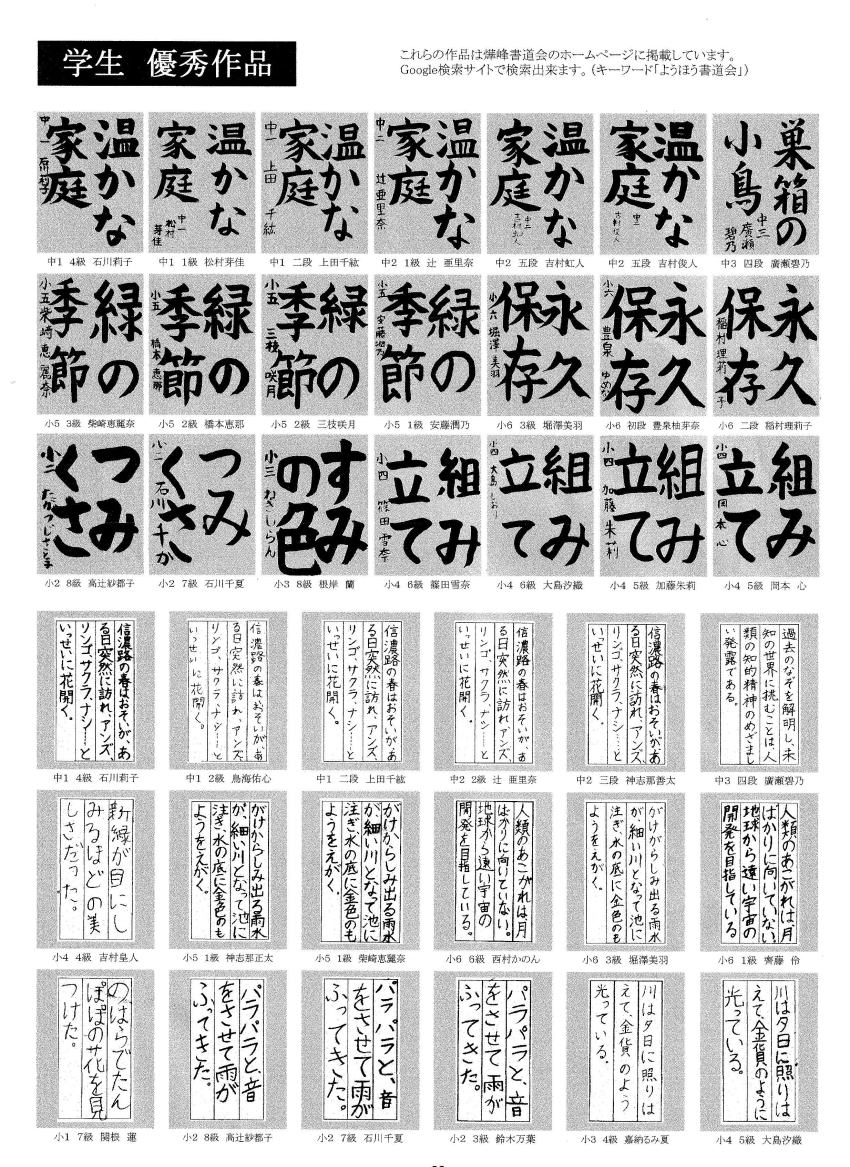 学生 優秀作品
これらの作品は燁峰書道会のホームページに掲載しています。
Google検索サイトで検索出来ます。（キーワード「ようほう書道会」）
温かな
家庭
中一
温かな
家庭
中一 松村 芽佳
温かな
家庭
中一 上田 千紘
温かな
家庭
中二 辻 亜里奈
温かな
家庭
中二 吉村虹人
温かな
家庭
中二 吉村俊人
巣箱の
小鳥
中三 廣瀬碧乃
中1 4級 石川莉子
中1 1級 松村芽佳
中1 二段 上田千紘
中2 1級 辻 亜里奈
中2 五段 吉村虹人
中2 五段 吉村俊人
中3 四段 廣瀬碧乃
緑の
季節
小五 柴崎 恵麗奈
緑の
季節
小五 橋本 恵那
緑の
季節
小五 三枝 咲月
緑の
季節
小五 安藤潤乃
永久
保存
小六 堀澤美羽
永久
保存
小六 豊泉 ゆめな
永久
保存
稲村理莉子
小5 3級 柴崎恵麗奈
小5 2級 橋本恵那
小5 2級 三枝咲月
小5 1級 安藤潤乃
小6 3級 堀澤美羽
小6 初段 豊泉柚芽奈
小6 二段 稲村理莉子
つみ
くさ
小二 たかつじさと子
つみ
くさ
小二 石川千か
すみ
の色
小三 ねぎしらん
組み
立て
小四 篠田雪奈
組み
立て
小四 大島しおり
組み
立て
小四 加藤朱莉
組み
立て
小四 岡本心
小2 8級 高辻紗都子
小2 7級 石川千夏
小3 8級 根岸 蘭
小4 6級 篠田雪奈
小4 6級 大島汐織
小4 5級 加藤朱莉
小4 5級 岡本 心
信濃路の春はおそいが、あ
る日突然に訪れ、アンズ、
リンゴ、サクラ、ナシ…と
いっせいに花開く。
信濃路の春はおそいが、あ
る日突然に訪れ、アンズ、
リンゴ、サクラ、ナシ…と
いっせいに花開く。
信濃路の春はおそいが、あ
る日突然に訪れ、アンズ、
リンゴ、サクラ、ナシ…と
いっせいに花開く。
信濃路の春はおそいが、あ
る日突然に訪れ、アンズ、
リンゴ、サクラ、ナシ…と
いっせいに花開く。
信濃路の春はおそいが、あ
る日突然に訪れ、アンズ、
リンゴ、サクラ、ナシ…と
いっせいに花開く。
過去のなぞを解明し、未
知の世界に挑むことは、人
類の知的精神のめざまし
い発露である。
中1 4級 石川莉子
中1 2級 鳥海佑心
中1 二段 上田千紘
中2 2級 辻 亜里奈
中2 三段 神志那善太
中3 四段 廣瀬碧乃
新緑が目にし
みるほどの美
しさだった。
がけからしみ出る雨水
が、細い川となって池に
注ぎ、水の底に金色のも
ようをえがく。
がけからしみ出る雨水
が、細い川となって池に
注ぎ、水の底に金色のも
ようをえがく。
人類のあこがれは、月
ばかりに向いていない。
地球から遠い宇宙の
開発を目指している。
がけからしみ出る雨水
が、細い川となって池に
注ぎ、水の底に金色のも
ようをえがく。
人類のあこがれは、月
ばかりに向いていない
地球から遠い宇宙の
開発を目指している。
小4 4級 吉村皇人
小5 1級 神志那正太
小5 1級 柴崎恵麗奈
小6 6級 西村かのん
小6 3級 堀澤美羽
小6 1級 齊藤 伶
のはらでたん
ぽぽの花を見
つけた。
パラパラと、音
をさせて雨が
ふってきた。
パラパラと、音
をさせて雨が
ふってきた。
パラパラと、音
をさせて雨が
ふってきた。
川は夕日に照りは
えて、金貨のよう
光っている。
川は夕日に照りは
えて、金貨のように
光っている。
小1 7級 関根 蓮
小2 8級 高辻紗都子
小2 7級 石川千夏
小2 3級 鈴木万葉
小3 4級 嘉納るみ夏
小4 5級 大島汐織